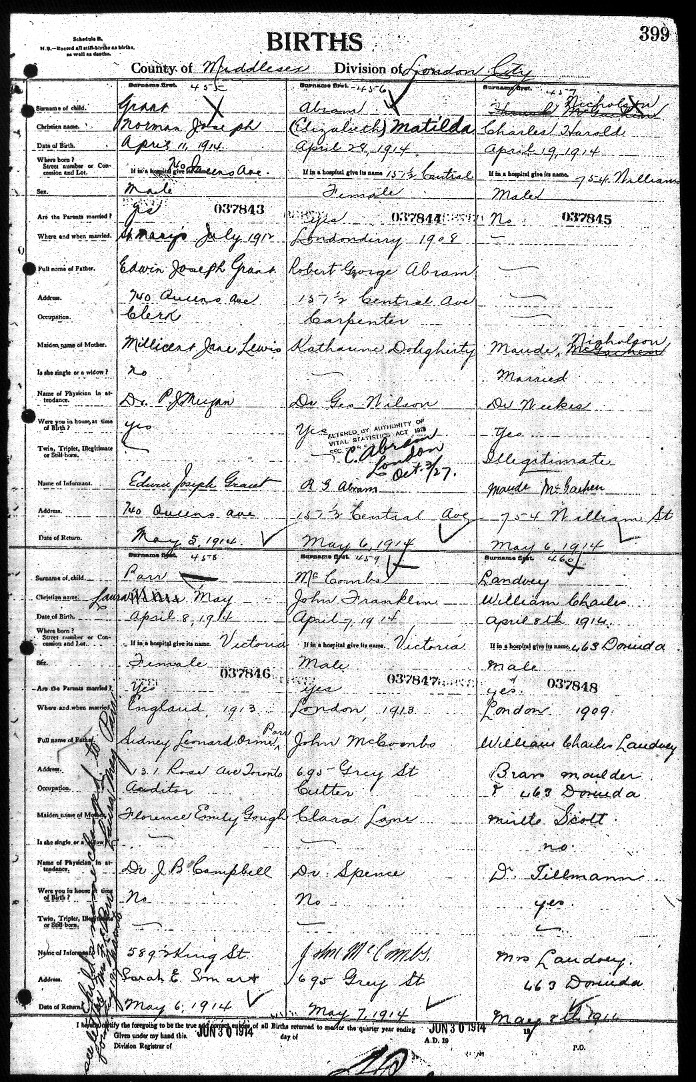 399
Schedule B.
N.B.—Record all still-births as births, as well as deaths.
BIRTHS
County of Middlesex Division of London City
Surname first. Surname first. Surname first.
455 456 457
Surname of child. Grant Abram Nicholson
Christian name. Norman Joseph (Elizabeth) Matilda Charles Harold
Date of Birth. April 11, 1914 April 28, 1914. April 19, 1914.
Where born? Street number or Concession and Lot. If in a hospital give its name. 740 Queens Ave. If in a hospital give its name. 157½ Central If in a hospital give its name. 754 William
Sex. Male Female Male
Are the Parents married? Yes 037843 Yes 037844 No 037845
Where and when married. St Marys July 1912 Londonderry 1908 —
Full name of Father. Edwin Joseph Grant Robert George Abram —
Address. 740 Queens Ave 157½ Central Ave —
Occupation. Clerk Carpenter —
Maiden name of Mother. Millicent Jane Lewis Katharine Dohgherty Maude Nicholson McEachern
Is she single or a widow? no — Married
Name of Physician in attendance. Dr. P J Mugan Dr Geo Wilson Dr Weekes
Were you in house, at time of Birth? yes Yes Yes
Twin, Triplet, Illegitimate or Still-born. — Illegitimate
ALTERED BY AUTHORITY OF
VITAL STATISTICS ACT
C. Abram
London
Oct. 3/27.
Name of Informant. Edwin Joseph Grant R G Abram Maude McEachern
Address. 740 Queens Ave 157½ Central Ave 754 William St
Date of Return. May 5, 1914. May 6, 1914 May 6, 1914
Surname first. Surname first. Surname first.
458 459 460
Surname of child. Parr McCombs Landvey
Christian name. Laura May John Franklin William Charles
Date of Birth. April 8, 1914 April 7, 1914 April 8th 1914.
Where born? Street number or Concession and Lot. If in a hospital give its name. Victoria If in a hospital give its name. Victoria If in a hospital give its name. 463
Sex. Female Male Male
Are the Parents married? Yes 037846 Yes 037847 yes. 037848
Where and when married. England, 1913 London, 1913 London 1909.
Full name of Father. Sidney Leonard Orme Parr John McCombs William Charles Landvey
Address. 131 Rose Ave Toronto 695 Grey St Brass moulder
Occupation. Auditor Cutter 463
Maiden name of Mother. Florence Emily Gough Clara Lane Scott
Is she single, or a widow? — — no
Name of Physician in attendance. Dr J B Campbell Dr. Spence Dr Tillmann
Were you in house at time of Birth? No No yes
Twin, Triplet, Illegitimate or Still-born. — — —
Name of Informant. 589½ King St. John McCombs. Mrs Landvey.
Address. Sarah E. Smart 695 Grey St 463
Date of Return. May 6, 1914 May 7, 1914 May 8th 1914
Child's name changed to Parr
I hereby certify the foregoing to be the true and correct entries of all Births returned to me for the quarter year ending JUN 30 1914
Given under my hand this JUN 30 1914 day of A.D. 19
Division Registrar of P.O.